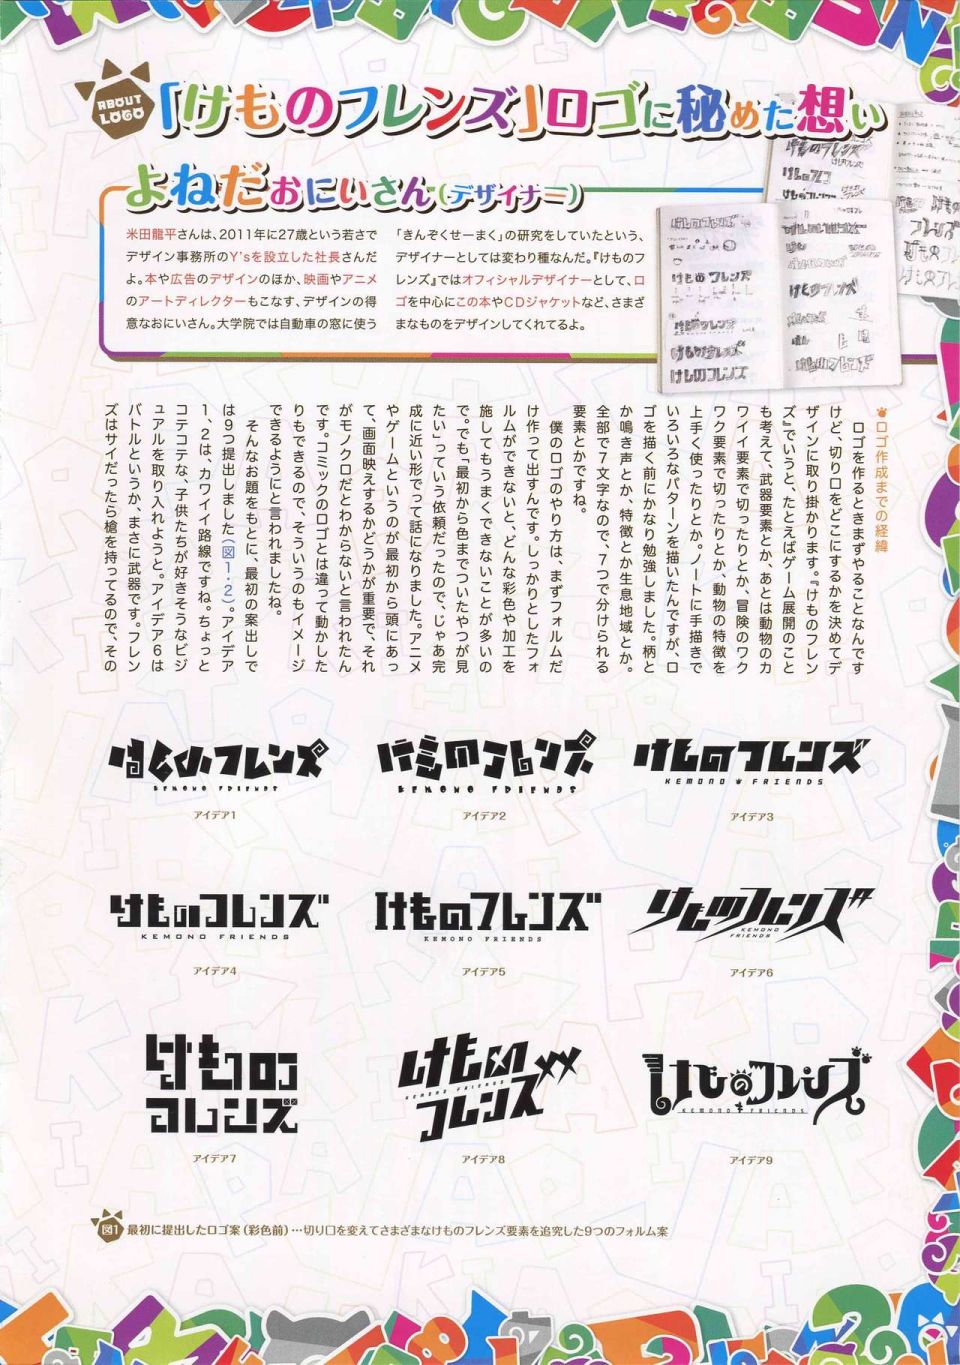 ABOUT
LOGO
「けものフレンズ」ロゴに秘めた想い
よねだおにいさん(デザイナー)
米田龍平さんは、2011年に27歳という若さで
デザイン事務所のY'sを設立した社長さんだ
よ。本や広告のデザインのほか、映画やアニメ
のアートディレクターもこなす、デザインの得
意なおにいさん。大学院では自動車の窓に使う
「きんぞくせーまく」の研究をしていたという、
デザイナーとしては変わり種なんだ。『けものフ
レンズ』ではオフィシャルデザイナーとして、ロ
ゴを中心にこの本やCDジャケットなど、さまざ
まなものをデザインしてくれてるよ。
ロゴ作成までの経緯
ロゴを作るときまずやることなんです
けど、切り口をどこにするかを決めてデ
ザインに取り掛かります。『けものフレン
ズ』でいうと、たとえばゲーム展開のこと
も考えて、武器要素とか、あとは動物のカ
ワイイ要素で切ったりとか、冒険のワク
ワク要素で切ったりとか、動物の特徴を
上手く使ったりとか。ノートに手描きで
いろいろなパターンを描いたんですが、ロ
ゴを描く前にかなり勉強しました。柄と
か鳴き声とか、特徴とか生息地域とか。
全部で7文字なので、7つで分けられる
要素とかですね。
僕のロゴのやり方は、まずフォルムだ
け作って出すんです。しっかりとしたフォ
ルムができないと、どんな彩色や加工を
施してもうまくできないことが多いの
で。でも「最初から色までついたやつが見
たい」っていう依頼だったので、じゃあ完
成に近い形でって話になりました。アニメ
やゲームというのが最初から頭にあっ
て、画面映えするかどうかが重要で、それ
がモノクロだとわからないと言われたん
です。コミックのロゴとは違って動かした
りもできるので、そういうのもイメージ
できるようにと言われましたね。
そんなお題をもとに、最初の案出しで
は9つ提出しました(図1・2)。アイデア
1、2は、カワイイ路線ですね。ちょっと
コテコテな、子供たちが好きそうなビジ
ュアルを取り入れようと。アイデア6は
バトルというか、まさに武器です。フレン
ズはサイだったら槍を持ってるので、その
けものフレンズ
KEMONO FRIENDS
アイデア1
けものフレンズ
KEMONO FRIENDS
アイデア2
けものフレンズ
KEMONO FRIENDS
アイデア3
けものフレンズ
KEMONO FRIENDS
アイデア4
けものフレンズ
KEMONO FRIENDS
アイデア5
けものフレンズ
KEMONO
FRIENDS
アイデア6
けもの
フレンズ
アイデア7
けもの
KEMONO FRIENDS
フレンズ
アイデア8
けものフレンズ
KEMONO FRIENDS
アイデア9
図1 最初に提出したロゴ案(彩色前)…切り口を変えてさまざまなけものフレンズ要素を追究した9つのフォルム案